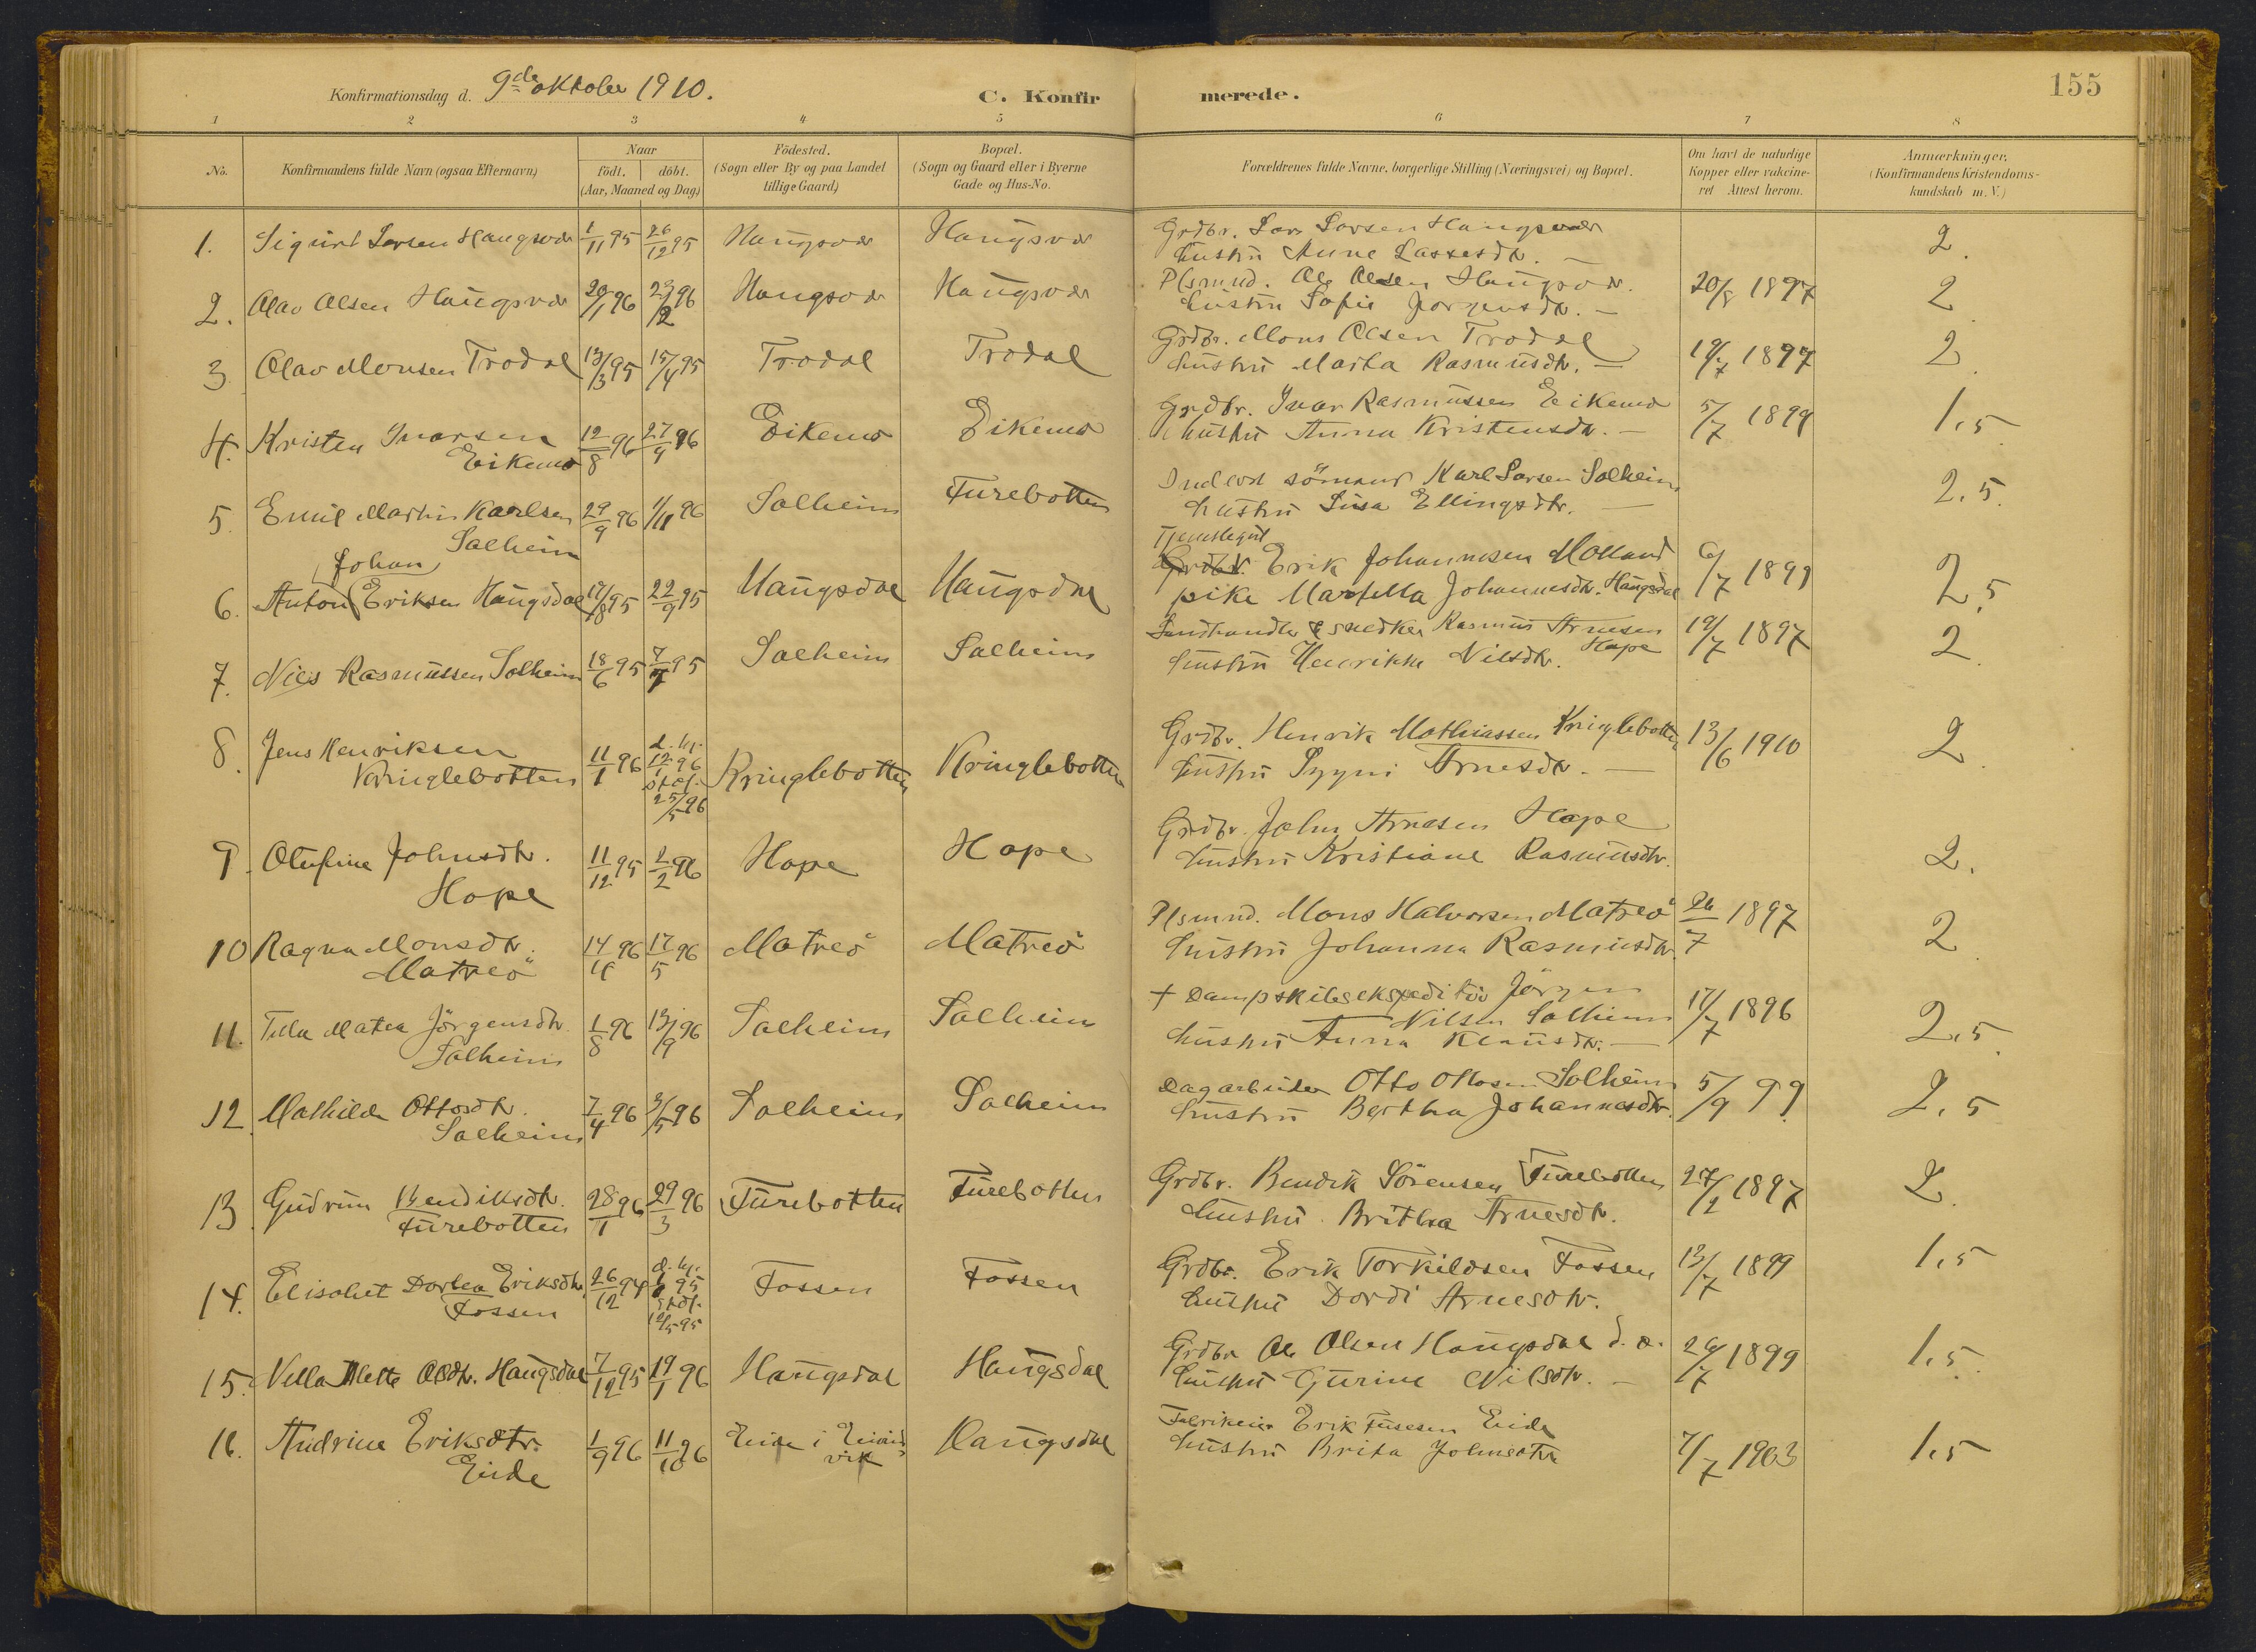 Konfirmationsdag d. 9de oktober 1910.
C. Konfirmerede.
155
1 2 3 4 5 6 7 8
No.
Konfirmandens fulde Navn (ogsaa Efternavn)
Naar
födt. döbt.
(Aar, Maaned og Dag)
Födested.
(Sogn eller By og paa Landet
tillige Gaard)
Bopæl.
(Sogn og Gaard eller i Byerne
Gade og Hus-No.
Forældrenes fulde Navne, borgerlige Stilling (Næringsvei) og Bopæl.
Om havt de naturlige
Kopper eller vakcine-
ret Attest herom.
Anmærkninger.
(Konfirmandens Kristendoms-
kundskab m. V.)
1. Sigurd Larsen Haugsvær 1/11 95 26/12 95 Haugsvær Haugsvær Grdbr. Lars Larsen Haugsvær 2.
hustru Anne Lassesdtr. —
2. Olav Olsen Haugsvær 20/1 96 23/2 96 Haugsvær Haugsvær Plsmnd. Ole Olsen Haugsvær. 20/8 1897 2.
hustru Sofie Jørgensdtr. —
3. Olav Monsen Trodal 13/3 95 15/4 95 Trodal Trodal Grdbr. Mons Olsen Trodal 19/7 1897 2.
hustru Marta Rasmusdtr. —
4. Kristen Ivarsen 12/8 96 27/9 96 Eikemo Eikemo Grdbr. Ivar Rasmussen Eikemo 5/7 1899 1,5
Eikemo
hustru Anna Kristensdtr. —
5. Emil Martin Karlsen 29/9 96 1/11 96 Solheim Furebotten Inderst sömand Karl Larsen Solheim 2,5
Solheim
hustru Susa Ellingsdtr. —
6. Anton Johan Eriksen Haugsdal 17/8 95 22/9 95 Haugsdal Haugsdal Tjenestegut
Grdbr. Erik Johannesen Molland 6/7 1899 2,5
pike Martella Johannesdtr. Haugsdal
7. Nils Rasmussen Solheim 18/6 95 7/7 95 Solheim Solheim Landhandler & snedker Rasmus Arnesen Hope 19/7 1897 2.
hustru Henrikke Nilsdtr.
8. Jens Henriksen 11/1 96 d. hj. 12/1 96 Kringlebotten Kringlebotten Grdbr. Henrik Mathiassen Kringlebotten 13/6 1910 2.
Kringlebotten
stadf. 25/5 96
hustru Synni Arnesdtr. —
9. Olufine Johnsdtr. 11/12 95 2/2 96 Hope Hope Grdbr. John Arnesen Hope 2.
Hope
hustru Kristiane Rasmusdtr.
10 Ragna Monsdtr. 14/4 96 17/5 96 Matreö Matreö Plsmnd. Mons Halvorsen Matreö 26/7 1897 2.
Matreö
hustru Johanna Rasmusdtr.
11. Tilla Matea Jörgensdtr. 1/8 96 13/9 96 Solheim Solheim + Dampskibsekspeditör Jörgen 17/7 1896 2,5
Solheim
Nilsen Solheim
hustru Anna Klausdtr. —
12. Mathilde Ottosdtr. 7/4 96 3/5 96 Solheim Solheim Dagarbeider Otto Ottosen Solheim 5/9 99 2,5
Solheim
hustru Bertha Johannesdtr.
13. Gudrun Bendiksdtr. 28/1 96 29/3 96 Furebotten Furebotten Grdbr. Bendik Sörensen Furebotten 27/2 1897 2.
Furebotten
hustru Britha Arnesdtr.
14. Elisabet Dortea Eriksdtr. 26/12 94 d. hj. 1/1 95 Fossen Fossen Grdbr. Erik Torkildsen Fossen 13/7 1899 1,5
Fossen
stadf. 12/5 95
hustru Dordi Arnesdtr.
15. Nella Mette Olsdtr. Haugsdal 7/12 95 19/1 96 Haugsdal Haugsdal Grdbr. Ole Olsen Haugsdal d. æ. 26/7 1899 1,5
hustru Gurine Nilsdtr. —
16. Andrine Eriksdtr. 1/9 96 11/10 96 Eide i Eivindvik Haugsdal Fabrikeier Erik Fusesen Eide 7/7 1903 1,5
Eide
hustru Brita Johnsdtr.